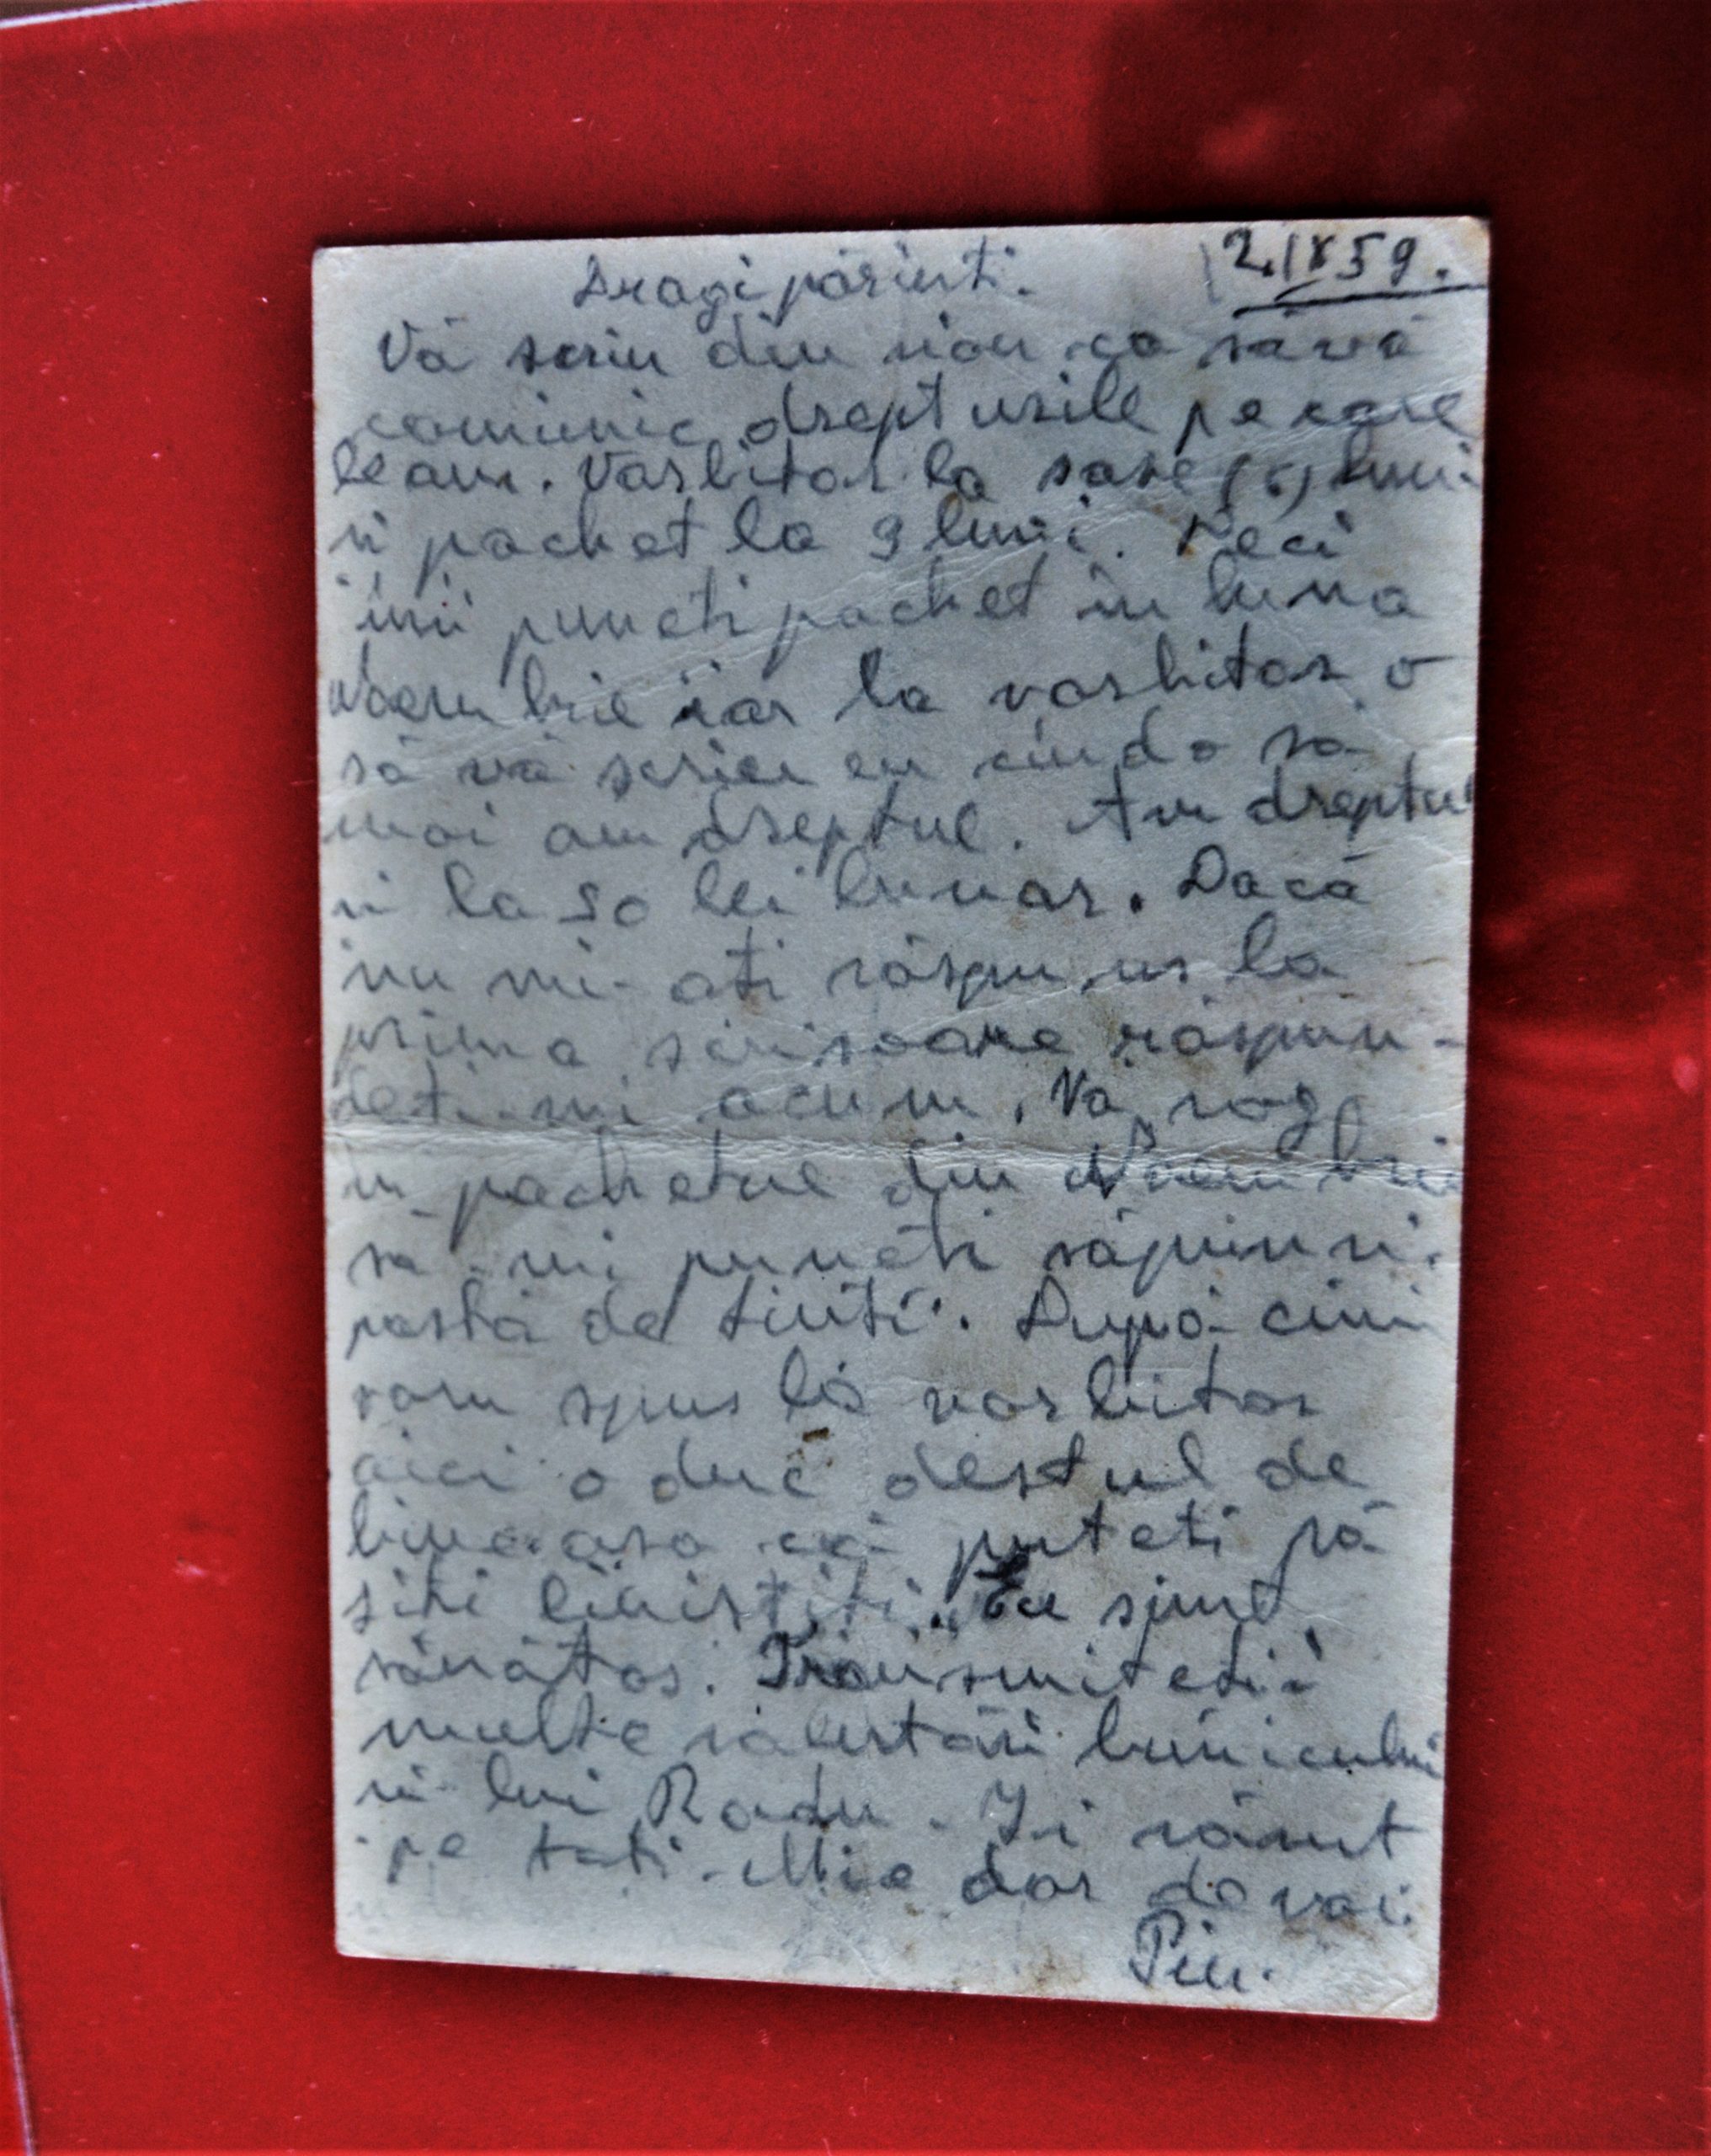 2.IX 59.
Dragi părinti.
Vă scriu din nou ca să vă
comunic drepturile pe care
le am. Vorbitor la șase (6) luni
si pachet la 3 luni. Deci
imi puneti pachet in luna
Noembrie iar la vorbitor o
să vă scriu eu cind o să
mai am dreptul. Am dreptul
si la 50 lei lunar. Dacă
nu mi-ati răspuns la
prima scrisoare răspun-
deti-mi acum. Vă rog
in pachetul din Noembrie
să-mi puneti săpun si
pastă de dinti. După cum
vam spus la vorbitor
aici o duc destul de
bine asa că puteti să
fiti linistiti. Eu sunt
sănătos. Transmiteti
multe salutări bunicului
si lui Radu. Îi sărut
pe toti. Mie dor de voi.
Pin.